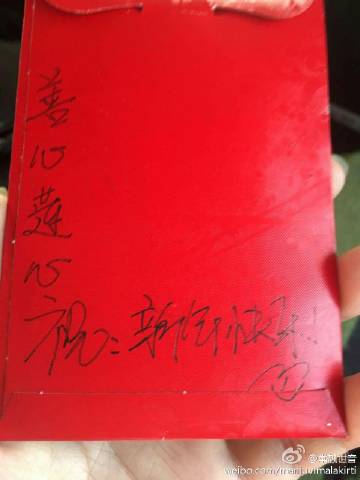 善
心
莲
心
祝：新年快乐！
@常观世音
weibo.com/manjuvimalakirti